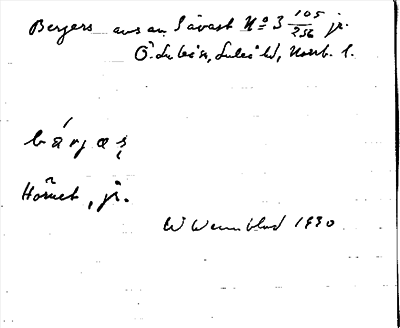 Bergers avs av Sävast No 3 105/256 jr.
Ö. Luleå s, Luleå td, Norrb. l.
bárjaş
Hörnet, jr.
W Wennblad 1930